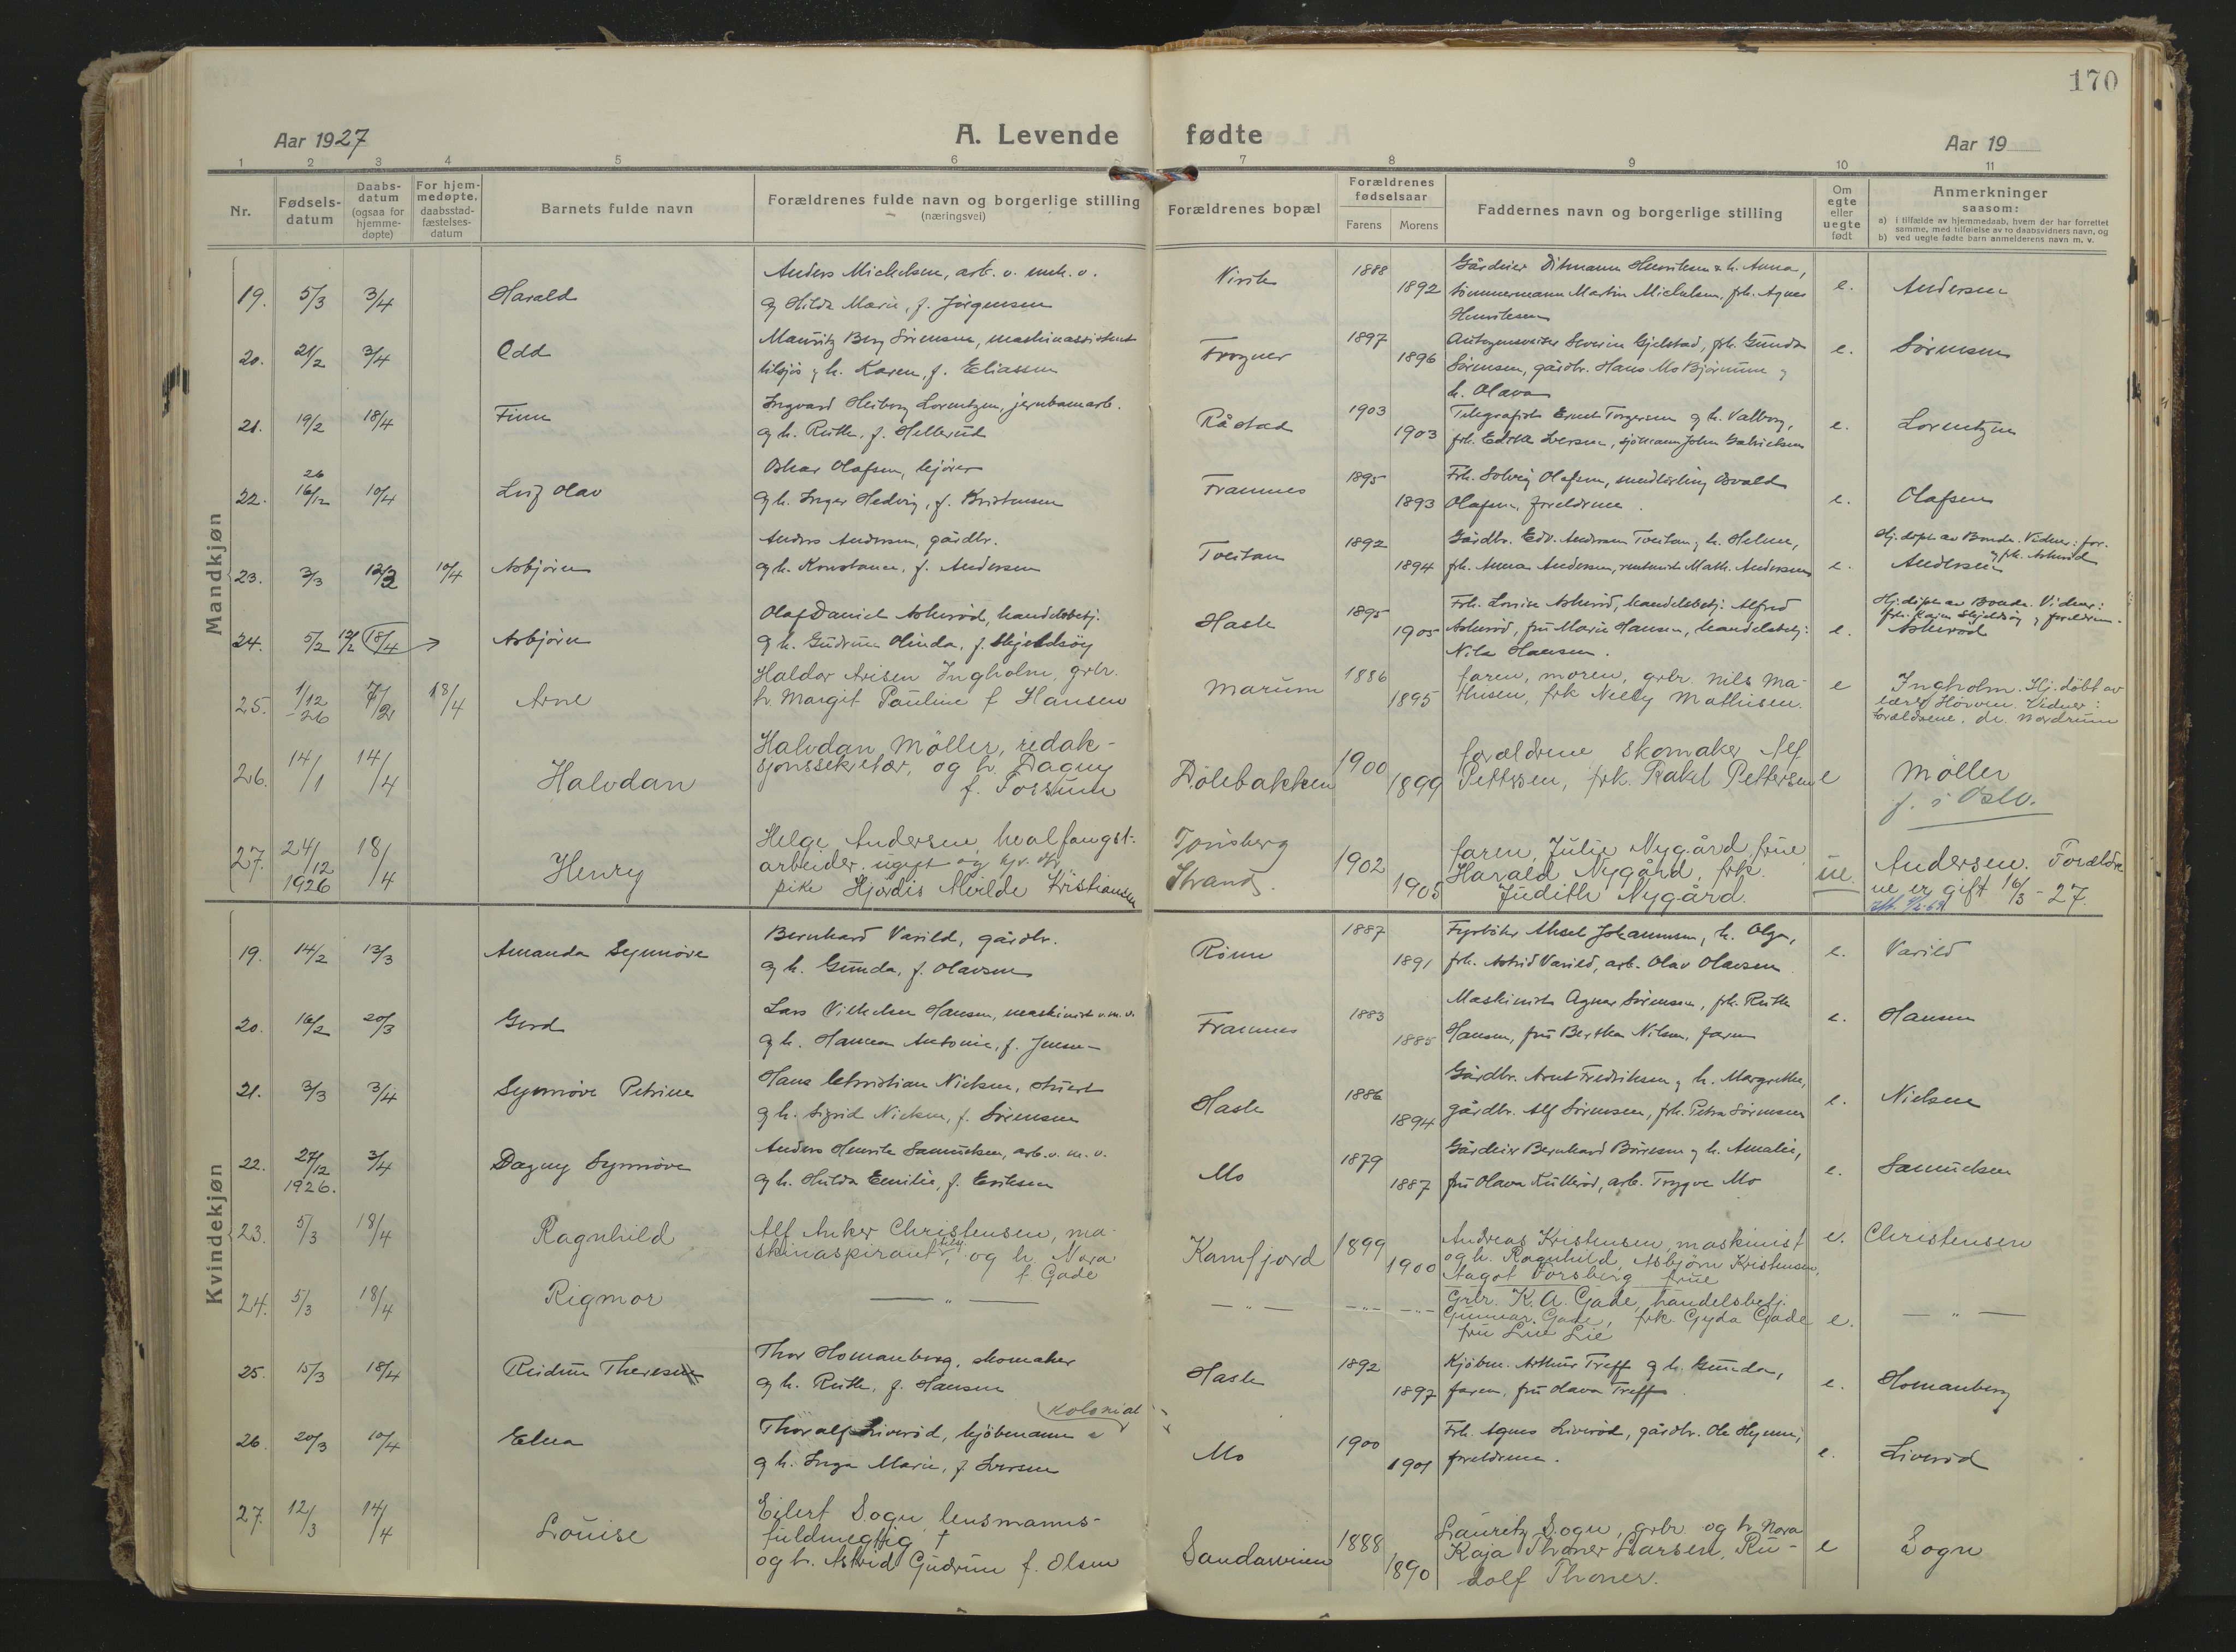 170
Aar 1927
A. Levende fødte
Aar 19
1 2 3 4 5 6 7 8 9 10 11
Nr.
Fødsels-
datum
Daabs-
datum
(ogsaa for
hjemme-
døpte)
For hjem-
medøpte,
daabsstad-
fæstelses-
datum
Barnets fulde navn
Forældrenes fulde navn og borgerlige stilling
(næringsvei)
Forældrenes bopæl
Forældrenes
fødselsaar
Farens Morens
Faddernes navn og borgerlige stilling
Om
egte
eller
uegte
født
Anmerkninger
saasom:
a) i tilfælde av hjemmedaab, hvem der har forrettet
samme, med tilføielse av to daabsvidners navn, og
b) ved uegte fødte barn anmelderens navn m. v.
Mandkjøn
19. 5/3 3/4 Harald
Anders Michelsen, arb. v. mek. v.
og Hilda Marie, f. Jørgensen
Virik 1888 1892
Gårdeier Ditmann Henriksen & h. Anna,
tømmermann Martin Michelsen, frk. Agnes
Henriksen
e. Andersen
20. 21/2 3/4 Odd
Mauritz Berg Sørensen, maskinassistent
tilsjøs og h. Karen, f. Eliassen
Frogner 1897 1896
Autogensveiser Severin Gjelstad, frk. Gunda
Sørensen, gårdbr. Hans Mo Bjørnum og
h. Olava
e. Sørensen
21. 19/2 18/4 Finn
Ingvard Heiborg Lorentzen, jernbanearb.
og h. Ruth, f. Hellerud
Råstad 1903 1903
Telegrafist Ernst Torgersen og h. Valborg,
frk. Edith Iversen, sjømann John Gabrielsen
e. Lorentzen
22. 26 16/12 10/4 Leif Olav
Oskar Olafsen, kjører
og h. Inger Hedvig, f. Kristensen
Framnes 1895 1893
Frk. Solveig Olafsen, smedlærling Osvald
Olafsen, foreldrene.
e. Olafsen
23. 3/3 12/3 10/4 Asbjørn
Anders Andersen, gårdbr.
og h. Konstance, f. Andersen
Tveitan 1892 1894
Gårdbr. Edv. Andersen Tveitan og h. Helene,
frk. Anna Andersen, rentenist Math. Andersen
e. Hj.døpt av Bonde. Vidner: for.
og frk. Askerød
Andersen
24. 5/2 12/2 18/4 Asbjørn
Olaf Daniel Askerød, handelsbetj.
og h. Gudrun Olinda, f. Skjeldsøy
Hasle 1895 1905
Frk. Lovise Askerød, handelsbetj. Alfred
Askerød, fru Marie Hansen, handelsbetj.
Nils Hansen.
e. Hj.døpt av Bonde. Vidner:
frk. Kajen Skjeldsøy og foreldrene.
Askerød
25. 1/12 -26 7/2 18/4 Arne
Haldor Arisen Ingholm, grbr.
h. Margit Pauline f Hansen
Marum 1886 1895
faren, moren, grbr. Nils Ma-
thisen, frk Nelly Mathisen.
e Ingholm. Hj.døbt av
lærer Horven. Vidner:
forældrene, dr. Nordrum
26. 14/1 14/4 Halvdan
Halvdan Møller, redak-
sjonssekretær, og h. Dagny
f. Fossum
Dølebakken 1900 1899
forældrene skomaker Alf
Pettersen, frk. Rakel Pettersen
e Møller
f. i Oslo.
27. 24/12 1926 18/4 Henry
Helge Andersen, hvalfangst-
arbeider, ugift og
pike Hjørdis Mirlde Kristiansen
Tønsberg
Strand. 1902 1905
faren, Julie Nygård frue,
Harald Nygård, frk.
Judith Nygård.
ue. Andersen. Foreldre
ne er gift 16/3 - 27.
Kvindekjøn
19. 14/2 13/3 Amanda Synnøve
Bernhard Varild, gårdbr.
og h. Gunda, f. Olavsen
Rønn 1887 1891
Fyrbøter Aksel Johannesen, h. Olga,
frk. Astrid Varild, arb. Olav Olavsen
e. Varild
20. 16/2 20/3 Gerd
Lars Vilhelm Hansen, maskinist v.m.v.
og h. Hanna Antonie, f. Jensen
Framnes 1883 1885
Maskinist Agnar Sørensen, frk. Ruth
Hansen, fru Bertha Nilsen, faren
e. Hansen
21. 3/3 3/4 Synnøve Petrine
Hans Christian Nielsen, stuert
og h. Sigrid Nielsen, f. Sørensen
Hasle 1886 1894
Gårdbr. Arnt Fredriksen og h. Margrethe,
gårdbr. Alf Sørensen, frk. Petra Sørensen
e. Nielsen
22. 27/12 1926. 3/4 Dagny Synnøve
Anders Henrik Samuelsen, arb. v. m. v.
og h. Hulda Emilie, f. Eriksen
Mo 1879 1887
Gårdeier Bernhard Børresen og h. Amalie,
fru Olava Kullerød, arb. Trygve Mo
e. Samuelsen
23. 5/3 18/4 Ragnhild
Alf Anker Christensen, ma-
skinaspirant, og h Nora
f. Gade
Kamfjord 1899 1900
Andreas Kristensen, maskinist
og h. Ragnhild, Asbjørn Kristensen,
Aagot Forsberg frue
e. Christensen
24. 5/3 18/4 Rigmor
— " — — " — — " — — " —
Grbr. K. A. Gade, handelsbetj.
Gunnar Gade, frk. Gyda Gade
fru Lie
e. — " —
25. 15/3 18/4 Reidun Therese
Thor Homanberg, skomaker
og h. Ruth, f. Hansen
Hasle 1892 1897
Kjøbm. Arthur Treff og h. Gunda,
faren, fru Olava Treff.
e. Homanberg
26. 20/3 10/4 Elna
kolonial
Thoralf Liverød, kjøbmann
og h. Inga Marie, f. Iversen
Mo 1900 1901
Frk. Agnes Liverød, gårdbr. Ole Hynne,
foreldrene.
e. Liverød
27. 12/3 14/4 Louise
Eilert Sogn, lensmanns-
fuldmegtig †
og h. Astrid Gudrun f. Olsen
Sandarveien 1888 1890
Lauretz Sogn, grbr og h. Nora
Kaja Thoner Larsen, Ru-
dolf Thoner.
e Sogn